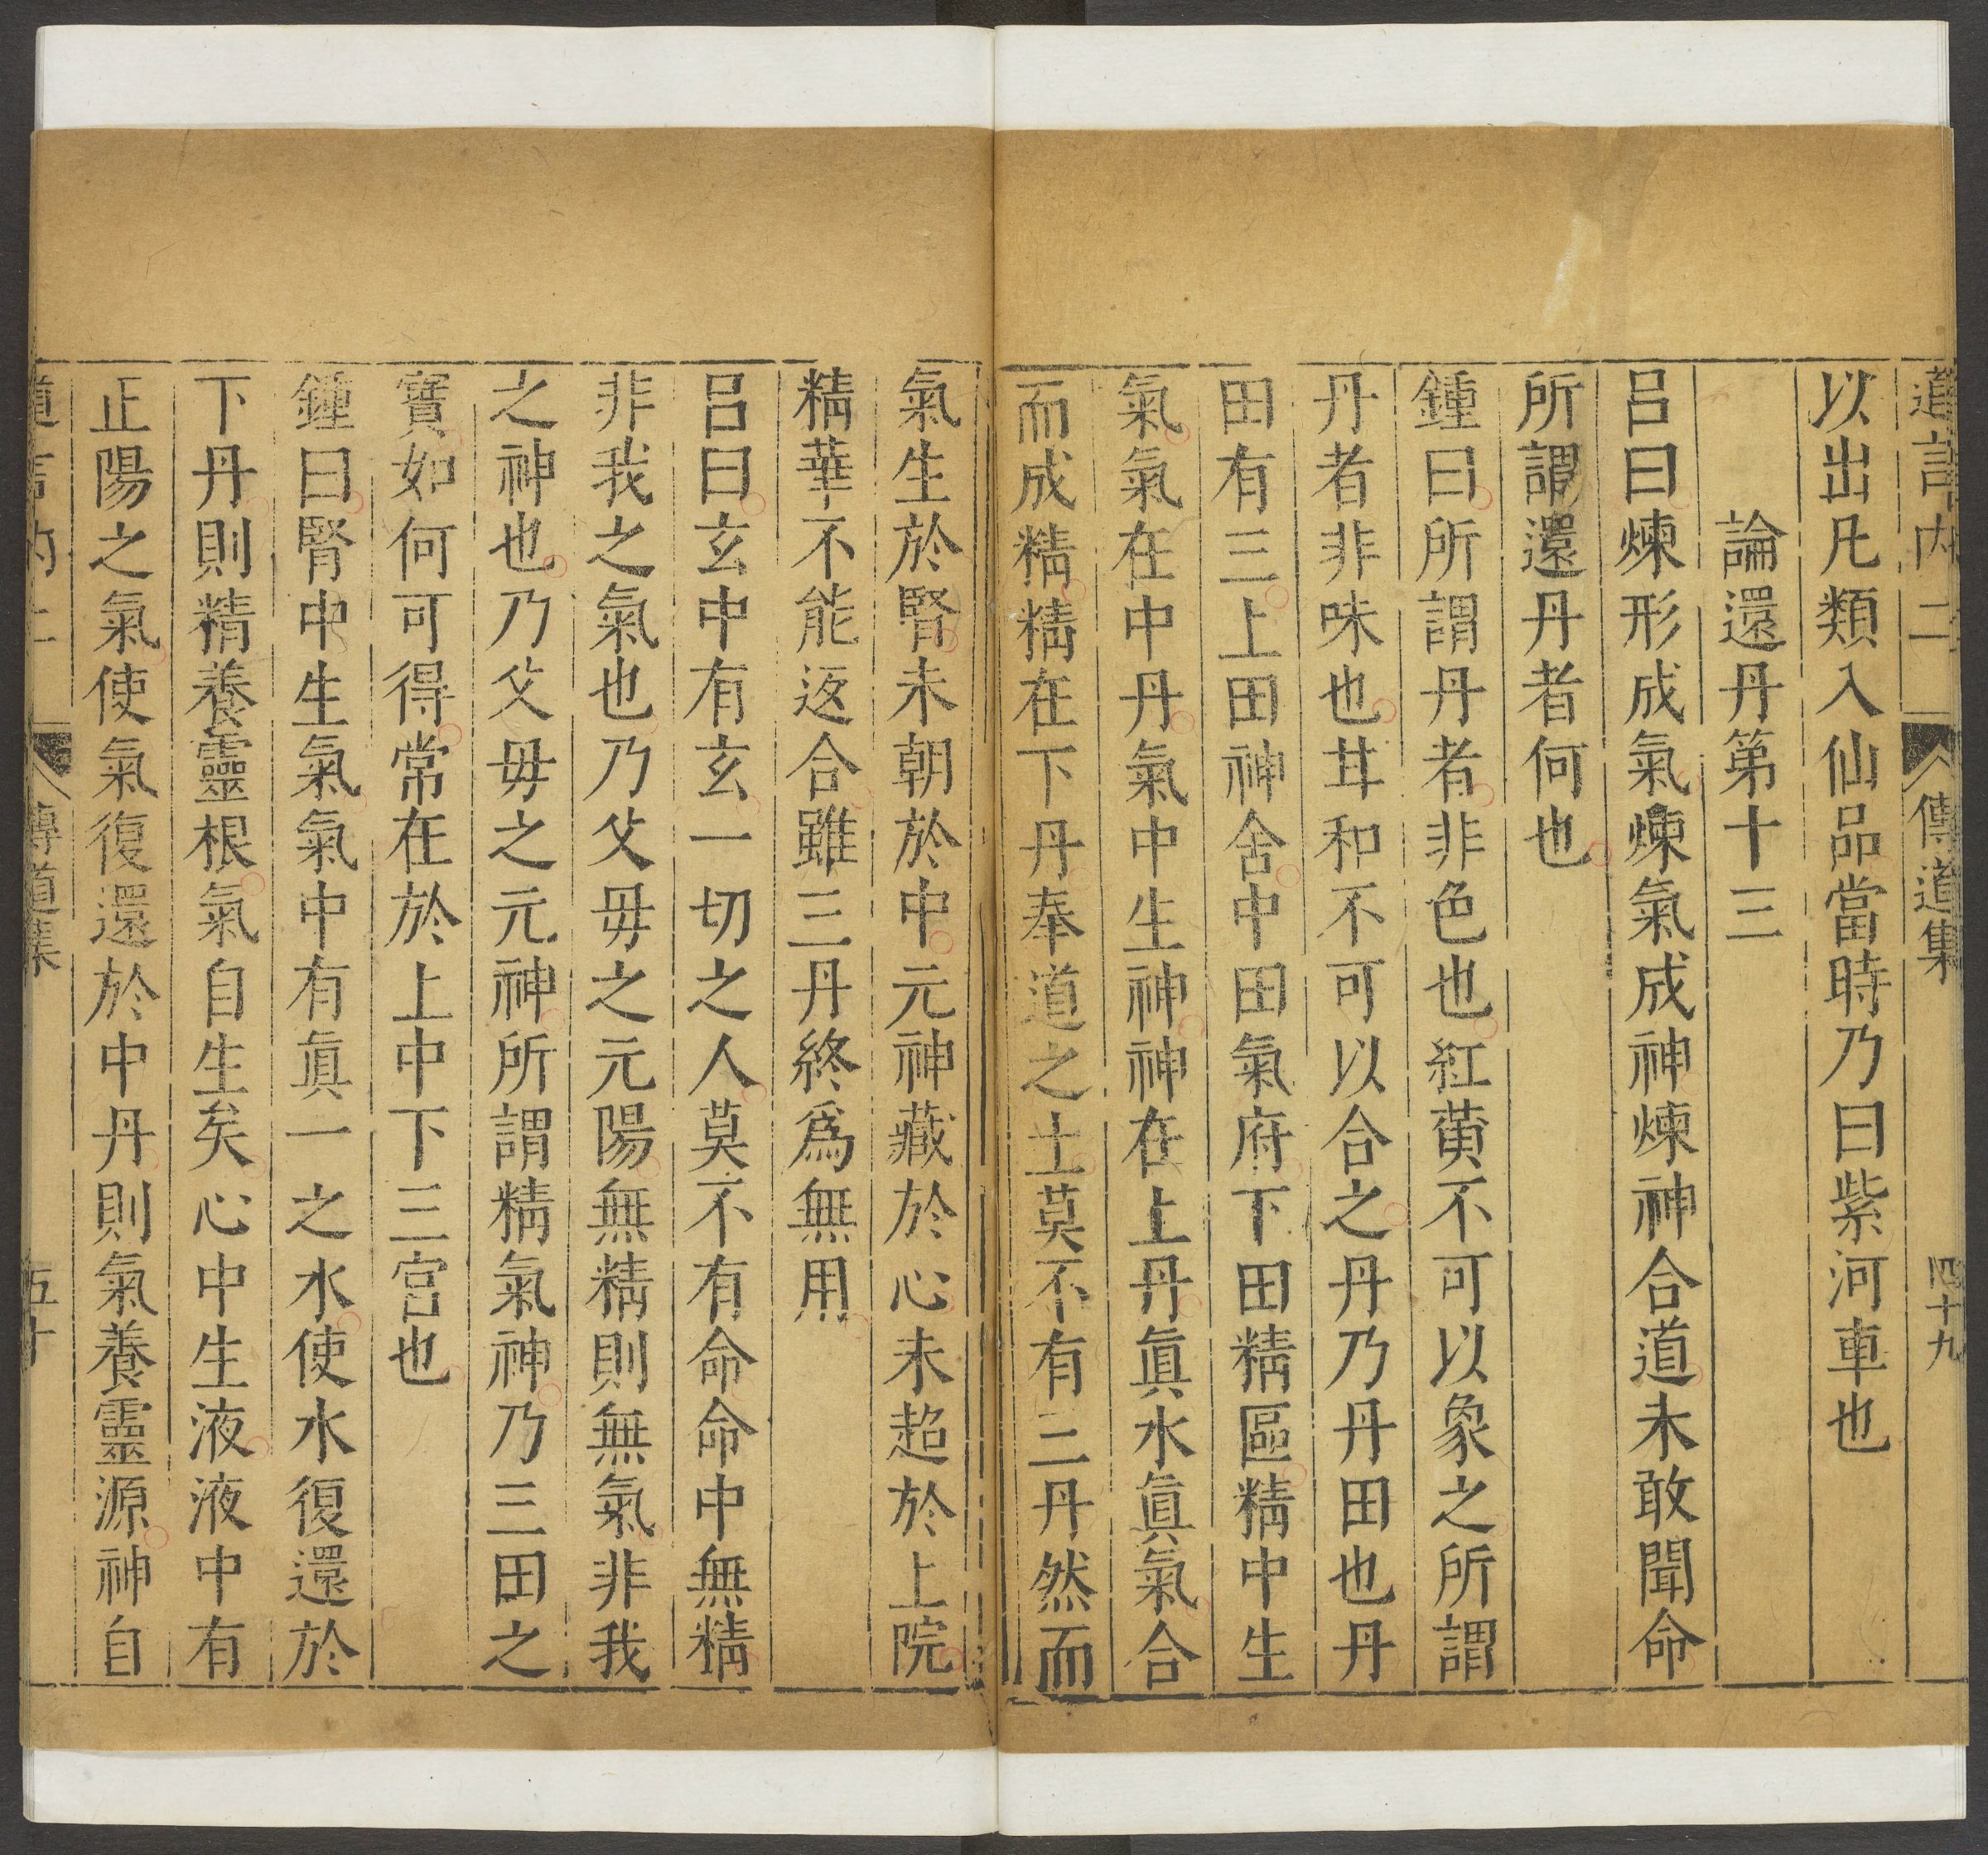 道言内二 傳道集 四十九
以出凡類入仙品當時乃曰紫河車也
論還丹第十三
呂曰煉形成氣煉氣成神煉神合道未敢聞命
所謂還丹者何也
鍾曰所謂丹者非色也紅黄不可以象之所謂
丹者非味也甘和不可以合之丹乃丹田也丹
田有三上田神舍中田氣府下田精區精中生
氣氣在中丹氣中生神神在上丹眞水眞氣合
而成精精在下丹奉道之士莫不有三丹然而
氣生於腎未朝於中元神藏於心未超於上院
精華不能返合雖三丹終爲無用
呂曰玄中有玄一切之人莫不有命命中無精
非我之氣也乃父毋之元陽無精則無氣非我
之神也乃父毋之元神所謂精氣神乃三田之
寶如何可得常在於上中下三宫也
鍾曰腎中生氣氣中有眞一之水使水復還於
下丹則精養靈根氣自生矣心中生液液中有
正陽之氣使氣復還於中丹則氣養靈源神自
道言内二 傳道集 五十